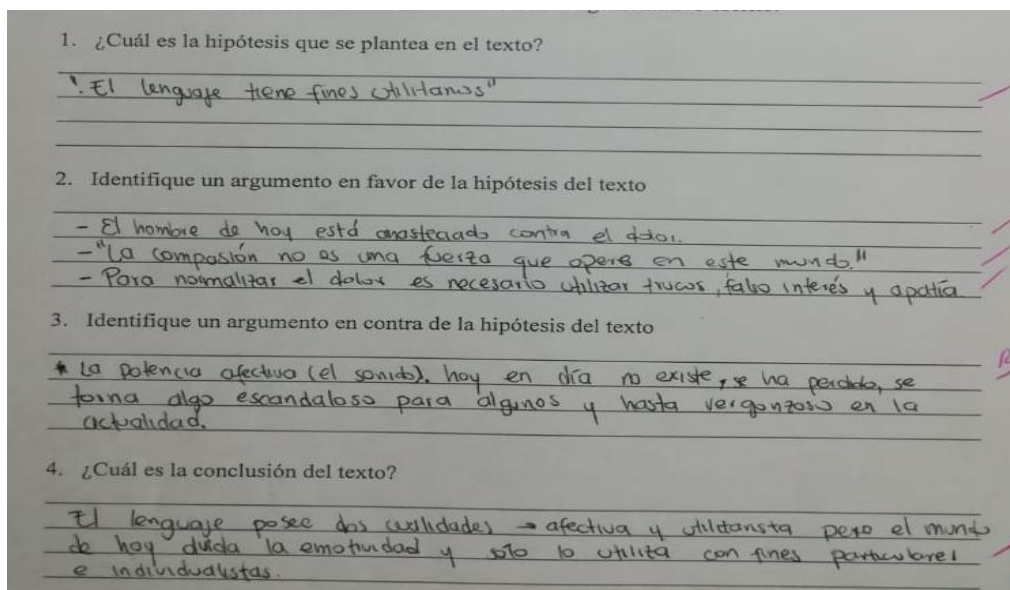 1. ¿Cuál es la hipótesis que se plantea en el texto?
". El lenguaje tiene fines utilitarios"
2. Identifique un argumento en favor de la hipótesis del texto
- El hombre de hoy está anesteciado contra el dolor.
- "La compasión no es una fuerza que opere en este mundo."
- Para normalizar el dolor es necesario utilizar trucos, falso interés y apatía.
3. Identifique un argumento en contra de la hipótesis del texto
* La potencia afectiva (el sonido). hoy en día no existe, se ha perdido, se
torna algo escandaloso para algunos y hasta vergonzoso en la
actualidad.
4. ¿Cuál es la conclusión del texto?
El lenguaje posee dos cualidades → afectiva y utilitarista pero el mundo
de hoy duida la emotividad y sólo lo utiliza con fines particulares
e individualistas.